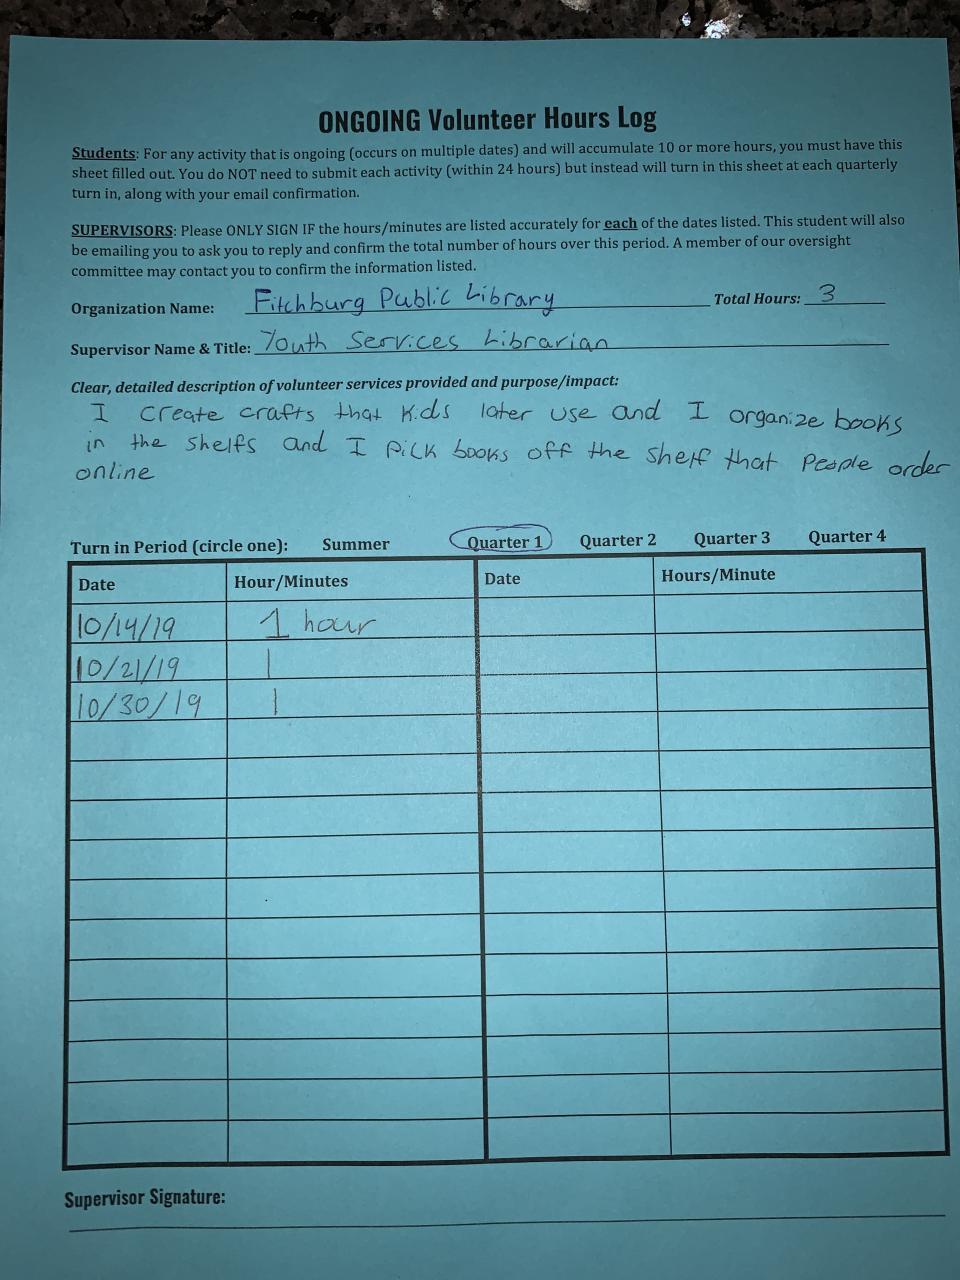 ONGOING Volunteer Hours Log
Students: For any activity that is ongoing (occurs on multiple dates) and will accumulate 10 or more hours, you must have this
sheet filled out. You do NOT need to submit each activity (within 24 hours) but instead will turn in this sheet at each quarterly
turn in, along with your email confirmation.
SUPERVISORS: Please ONLY SIGN IF the hours/minutes are listed accurately for each of the dates listed. This student will also
be emailing you to ask you to reply and confirm the total number of hours over this period. A member of our oversight
committee may contact you to confirm the information listed.
Organization Name: Fitchburg Public Library Total Hours: 3
Supervisor Name & Title: Youth Services Librarian
Clear, detailed description of volunteer services provided and purpose/impact:
I create crafts that kids later use and I organize books
in the shelfs and I pick books off the shelf that people order
online
Turn in Period (circle one): Summer Quarter 1 Quarter 2 Quarter 3 Quarter 4
Date Hour/Minutes Date Hours/Minute
10/14/19 1 hour
10/21/19 1
10/30/19 1
Supervisor Signature: